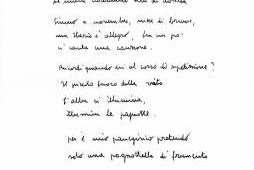 Siamo a novembre, mese di brume,
ma Ilario è allegro, ha un po'
e canta una canzone.
Ricordi quando eri al corso di ripetizione?
Il piccolo fuoco della
L'alba ci illumina,
illumina le pagnotte.
per il mio panegirico pretendo
solo una pagnottella di frumento